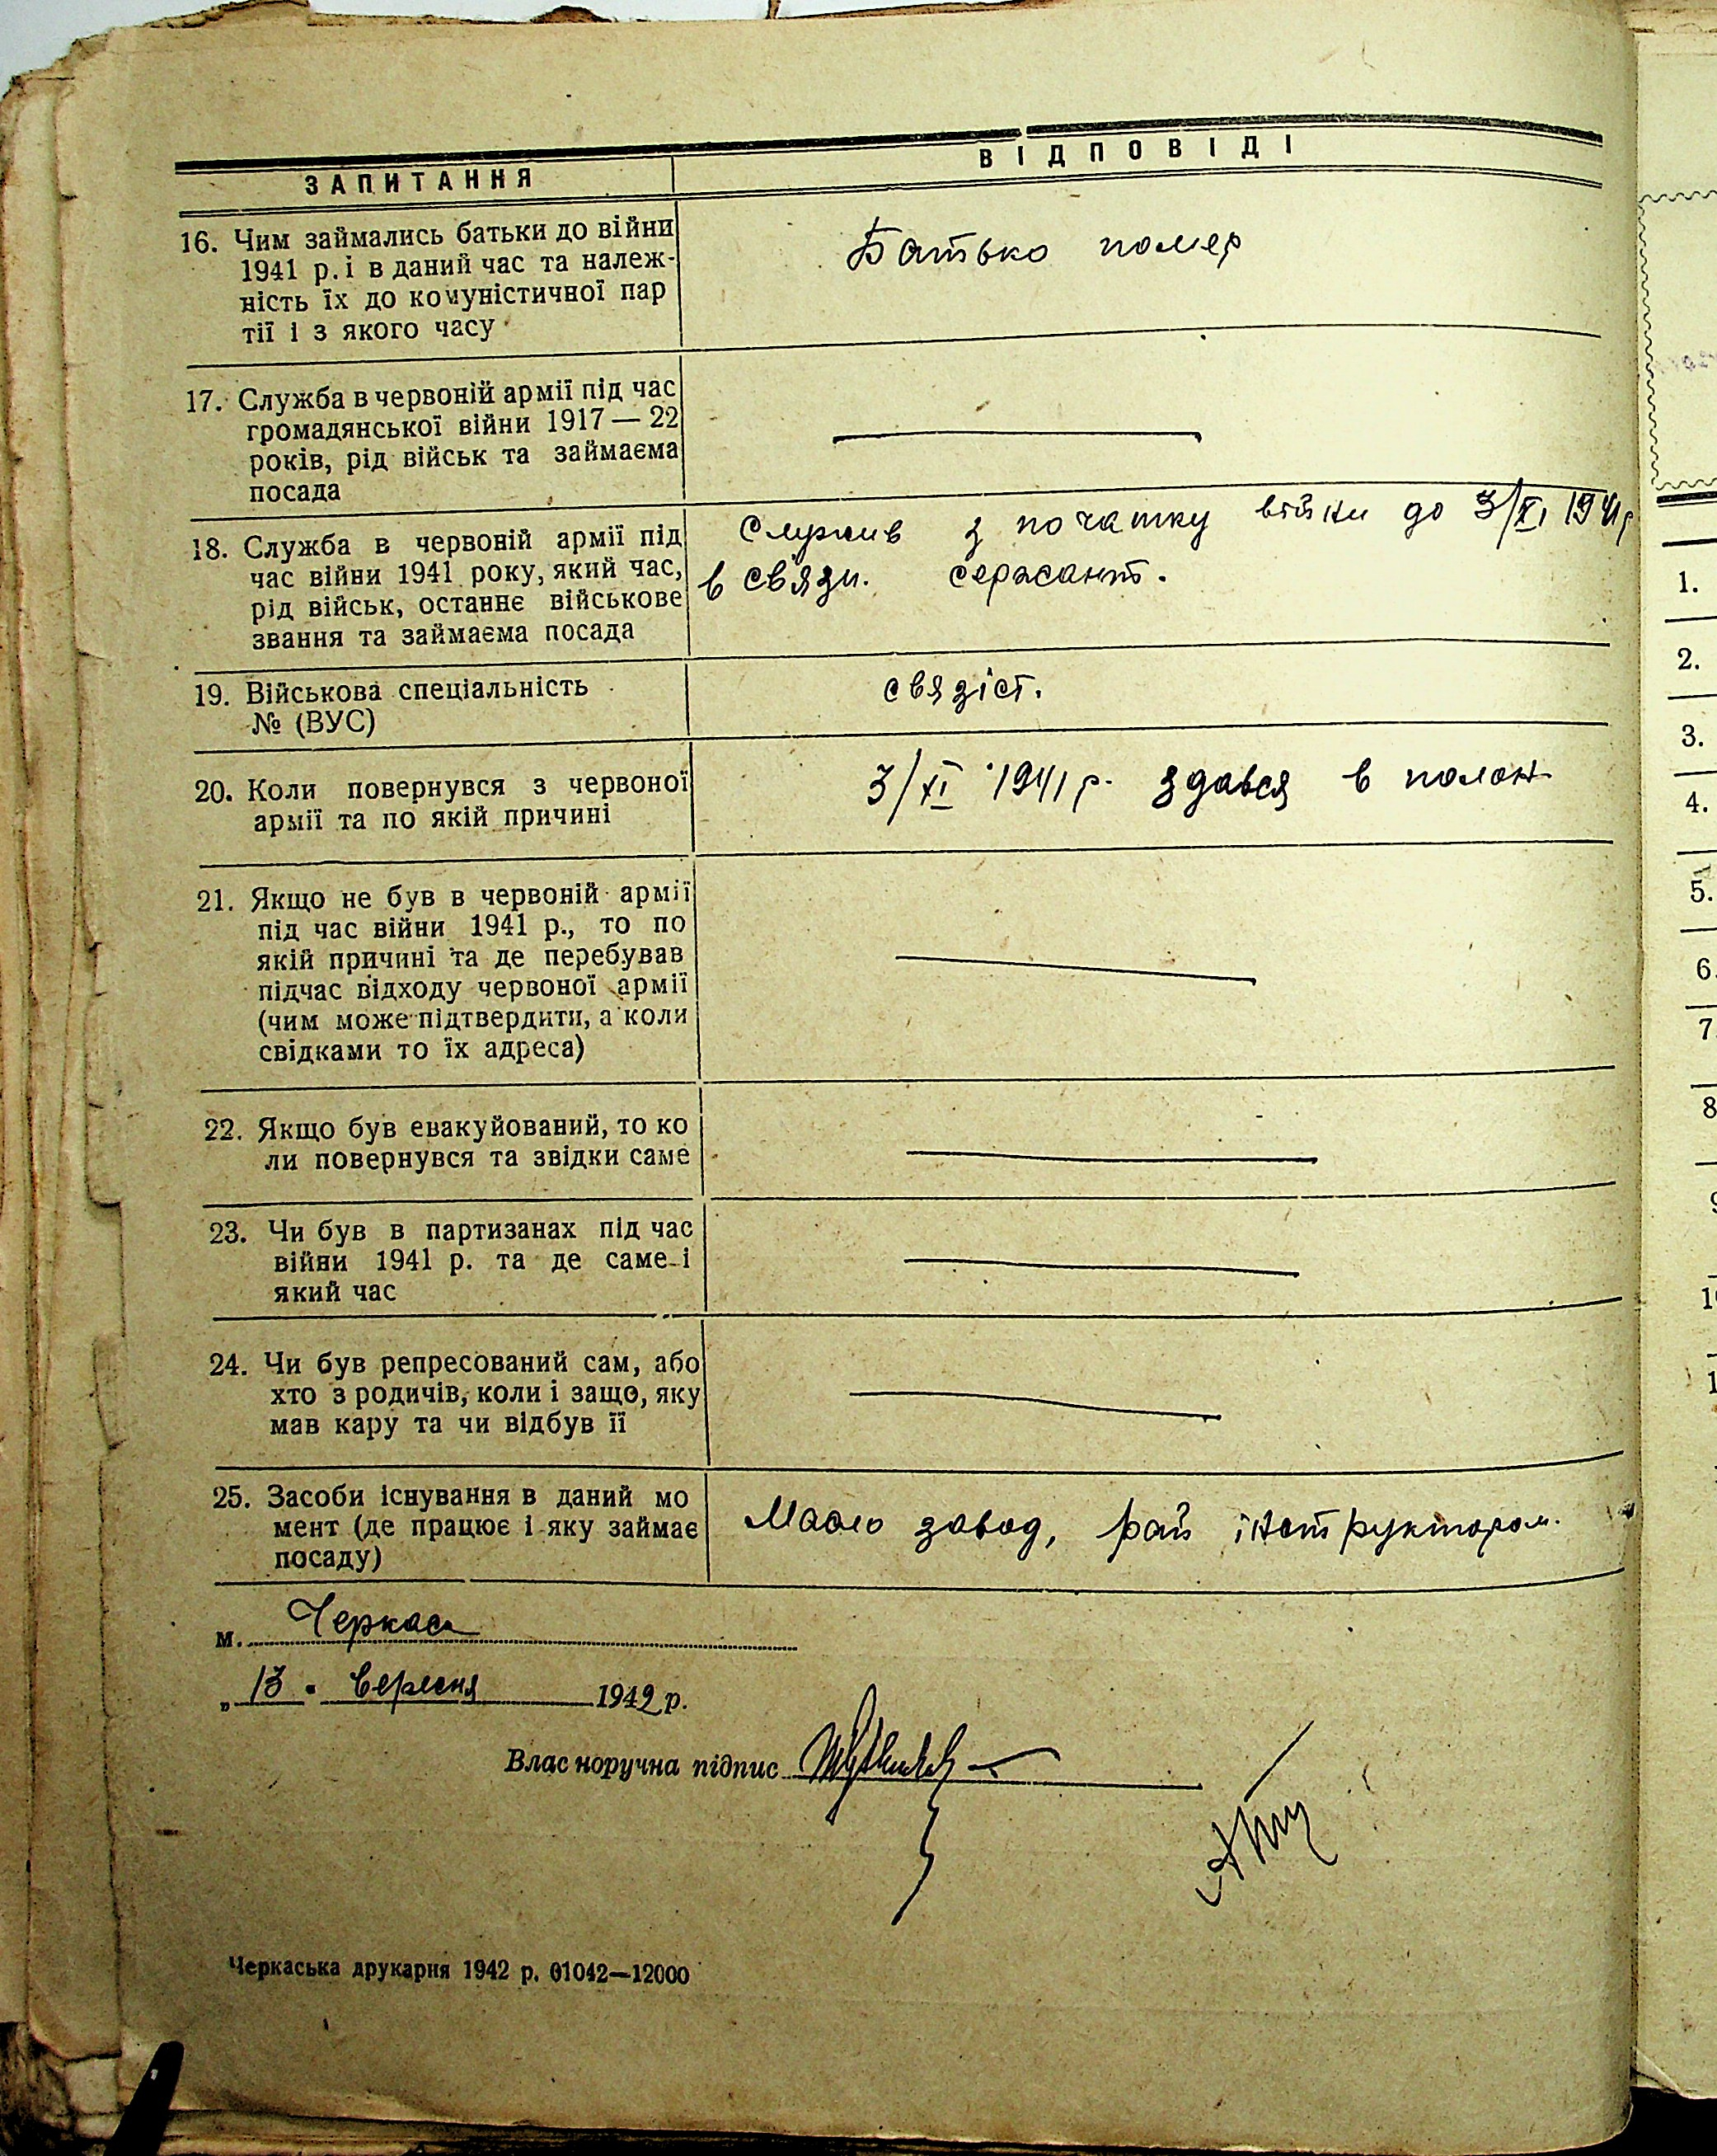 ЗАПИТАННЯ
ВІДПОВІДІ
16. Чим займались батьки до війни
1941 р. і в даний час та належ-
ність їх до комуністичної пар
тії і з якого часу
Батько помер
17. Служба в червоній армії під час
громадянської війни 1917 — 22
років, рід військ та займаєма
посада
18. Служба в червоній армії під
час війни 1941 року, який час,
рід військ, останнє військове
звання та займаєма посада
Служив з початку війни до 3/XI 1941 р
в связи. сержант.
19. Військова спеціальність
№ (ВУС)
связіст.
20. Коли повернувся з червоної
армії та по якій причині
3/XI 1941 р. здався в полон
21. Якщо не був в червоній армії
під час війни 1941 р., то по
якій причині та де перебував
підчас відходу червоної армії
(чим може підтвердити, а коли
свідками то їх адреса)
22. Якщо був евакуйований, то ко
ли повернувся та звідки саме
23. Чи був в партизанах під час
війни 1941 р. та де саме і
який час
24. Чи був репресований сам, або
хто з родичів, коли і защо, яку
мав кару та чи відбув її
25. Засоби існування в даний мо
мент (де працює і яку займає
посаду)
Масло завод, рай інструктором.
м. Черкаси
„ 13 " вересня 1942 р.
Власноручна підпис
Черкаська друкарня 1942 р. 01042—12000
1.
2.
3.
4.
5.
6.
7.
8
9
10
1